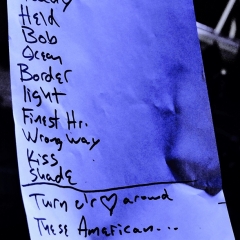 Held
Bob
Ocean
Border
light
Finest Hr.
Wrong way
Kiss
Shade
Turn ur ♡ around
These American...